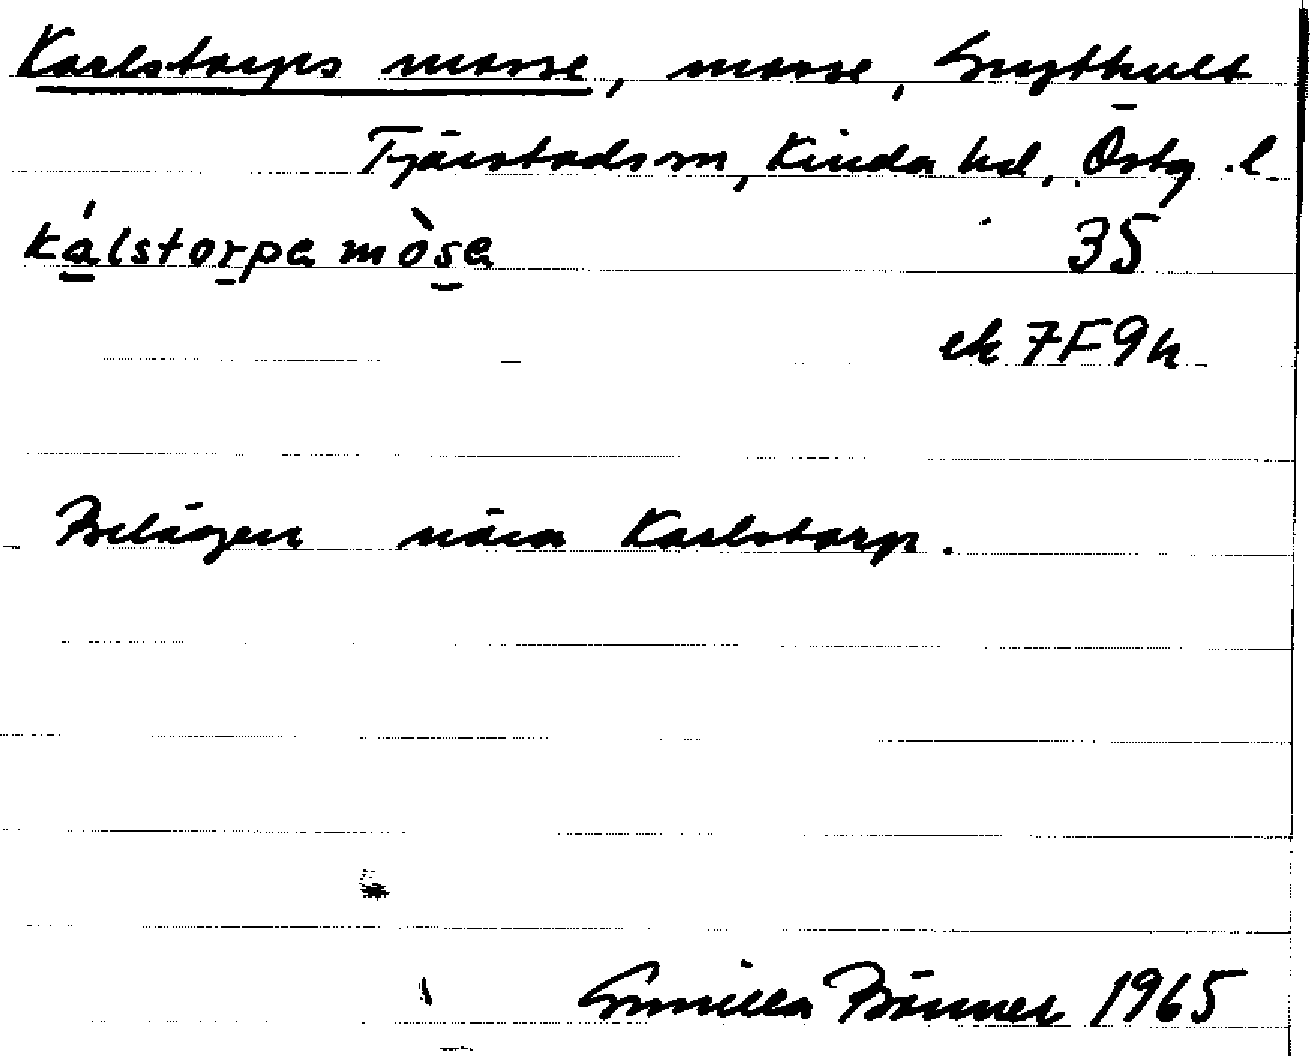 Karlstorps mosse, mosse,
Tjärstads sn, Kinda hd, Östg. l.
kálstorpa mòsa 35
ek 7F9h
Belägen nära Karlstorp.
Gunilla 1965